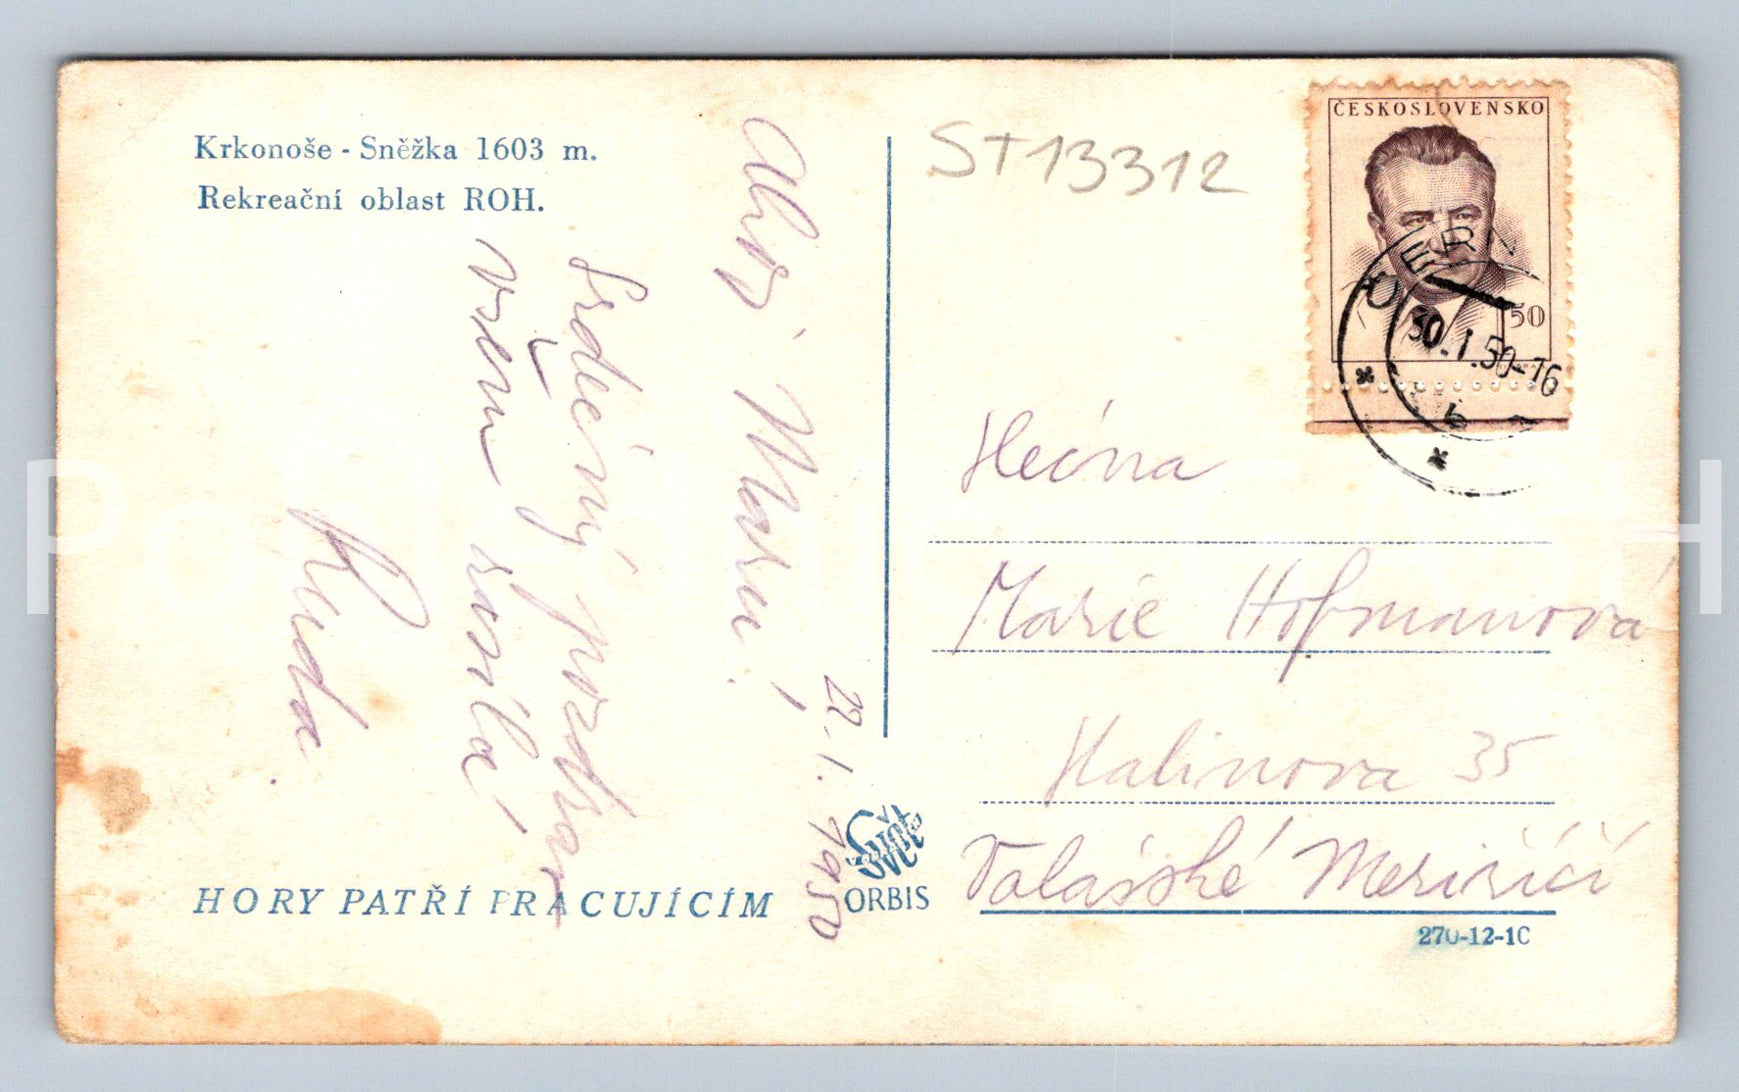 Krkonoše - Sněžka 1603 m.
Rekreační oblast ROH.
Ahoj Maru!
Srdečný pozdrav
všem
Ruda.
22. 1. 1950
HORY PATŘÍ PRACUJÍCÍM
ORBIS
ST13312
ČESKOSLOVENSKO
50
30.I.50-16
Marie Hofmanová
Kalinova 35
Valašské Meziříčí
270-12-1C